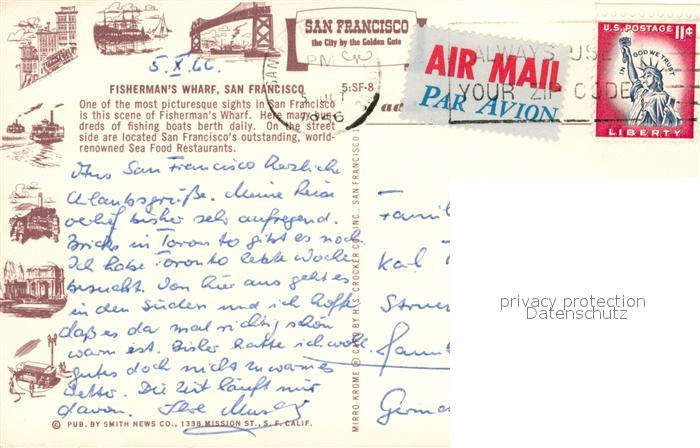 SAN FRANCISCO
the City by the Golden Gate
5.X.66.
SAN
PM
OCT
1966
AIR MAIL
PAR AVION
ALWAYS USE
YOUR ZIP CODE
U.S. POSTAGE 11¢
IN GOD WE TRUST
LIBERTY
FISHERMAN'S WHARF, SAN FRANCISCO 5:SF-8
One of the most picturesque sights in San Francisco
is this scene of Fisherman's Wharf. Here many hun-
dreds of fishing boats berth daily. On the street
side are located San Francisco's outstanding, world-
renowned Sea Food Restaurants.
Aus San Francisco herzliche
Urlaubsgrüße. Meine Reise
verlief bisher sehr aufregend.
in Toronto gibt es noch.
Ich habe Toronto letzte Woche
besucht. Von hier aus geht es
in den Süden und ich hoffe
daß es da mal richtig schön
warm ist. Bisher hatte ich
gutes doch nicht zu warmes
Wetter. Die Zeit läuft mir
davon. Ilse
Famil
Karl
Ham
Germa
MIRRO-KROME ® CARD BY H.S. CROCKER CO. INC., SAN FRANCISCO
© PUB. BY SMITH NEWS CO., 1336 MISSION ST., S. F. CALIF.
privacy protection
Datenschutz